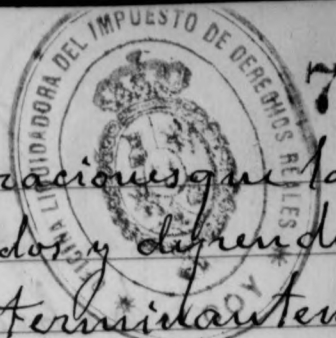 OFICINA LIQUIDADORA DEL IMPUESTO DE DERECHOS REALES
* ALCOY *
7
raciones que la
dos y dependi
terminantem